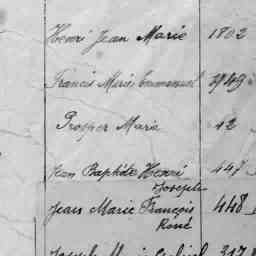 Henri Jean Marie 1802
Francis Marie Emmanuel
Prosper Marie 42
Jean Baptiste Henri 447
Joseph
Jean Marie François 448
René
Joseph Marie 317